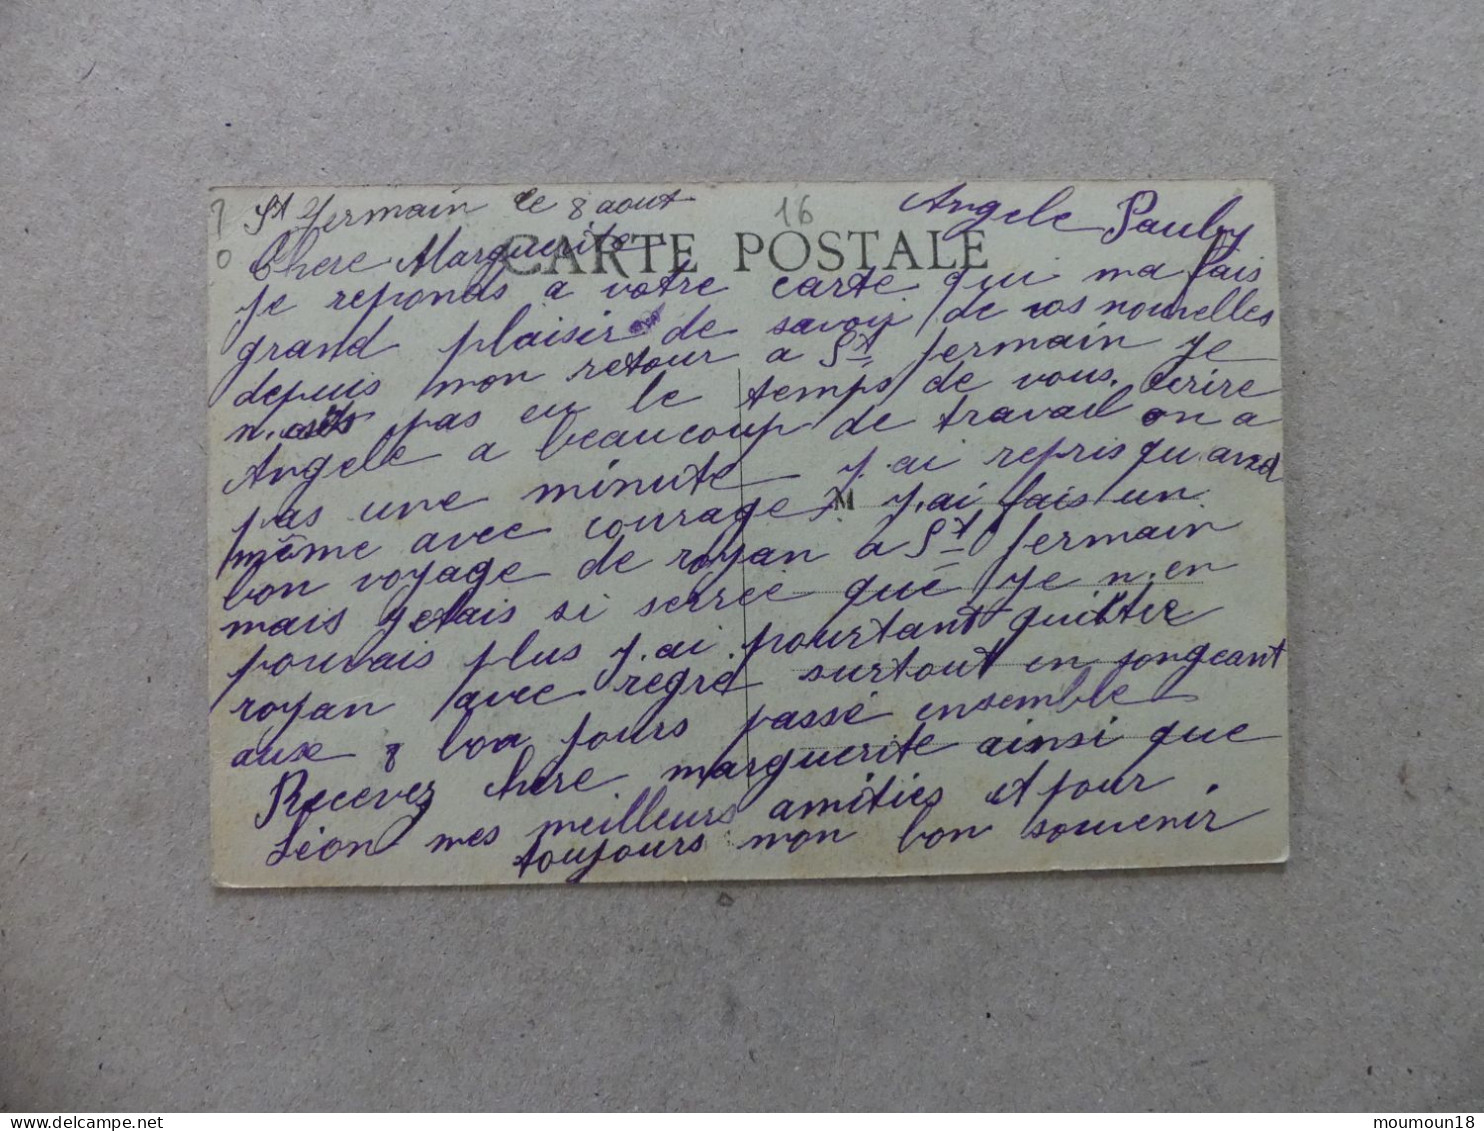 St Germain le 8 aout
16
Angele Pauby
CARTE POSTALE
Chere Marguerite
je reponds a votre carte qui ma fais
grand plaisir de savoir de vos nouvelles
depuis mon retour a St Germain je
n. pas eu le temps de vous ecrire
Angele a beaucoup de travail on a
pas une minute j.ai repris quand
même avec courage M j.ai fais un
bon voyage de royan a St Germain
mais jetais si serrée que je n.en
pouvais plus j.ai pourtant quitter
royan avec regre surtout en songeant
aux 8 bon jours passé ensemble
Recevez chere marguerite ainsi que
Léon mes meilleurs amitiés et pour
toujours mon bon souvenir
moumoun18